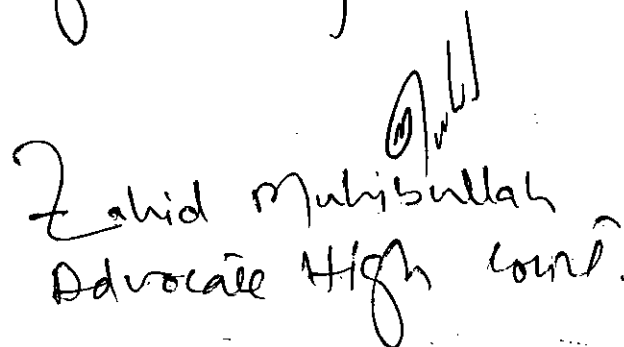 Zahid Muhibullah
Advocate High Court.